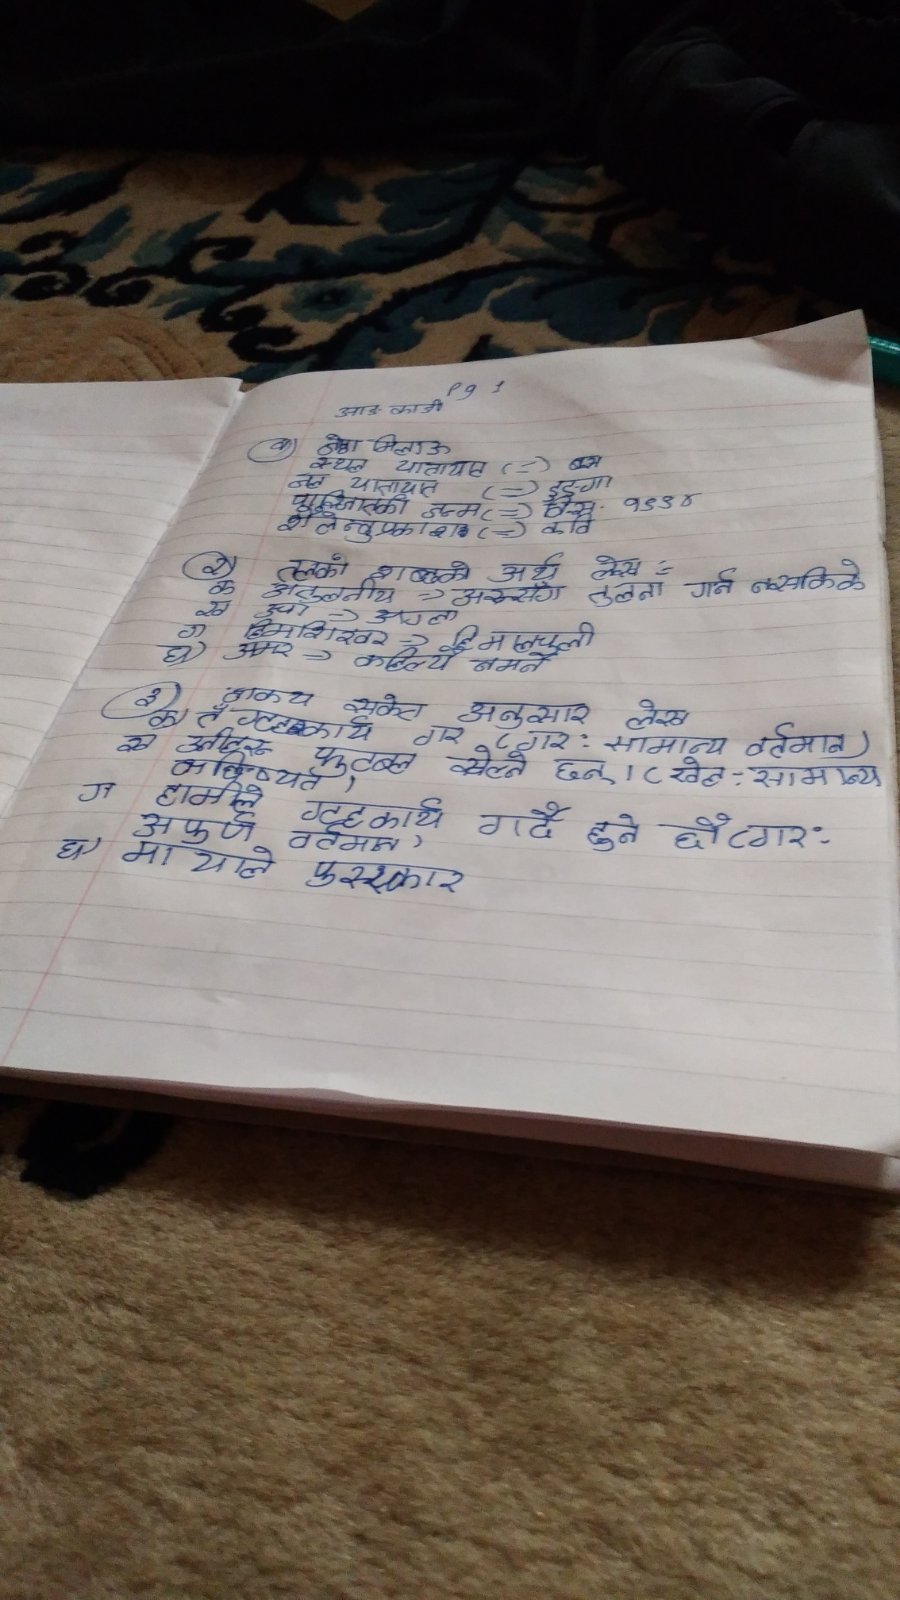 Pg 1
आङ काजी
(क) जोडा मिलाऊ
स्थल यातायात (=) बस
जल यातायात (=) डुङ्गा
जन्म (=) वि.स. १९९४
शैलेन्दुप्रकाश (=) कवि
(२) तलका शब्दको अर्थ लेख :-
क अतुलनीय => अरुसँग तुलना गर्न नसकिके
ख => अग्ला
ग हिमशिखर =>
घ) अमर => कहिल्यै नमर्ने
(३) वाक्य सकेत अनुसार लेख
क) तँ गृहकार्य गर (गर : सामान्य वर्तमान)
ख उनीहरू फुटबल खेल्ने छन् । (खेल : सामान्य
भविष्यत)
ग हामीले गृहकार्य गर्दै हुने छौँ (गर :
अपुर्ण वर्तमान)
घ) मायाले पुरस्कार